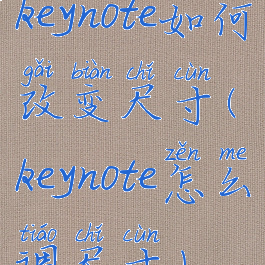 keynote如何
gǎi biàn chǐ cùn
改变尺寸(
zěn me
keynote怎么
tiáo chǐ cùn
调尺寸)